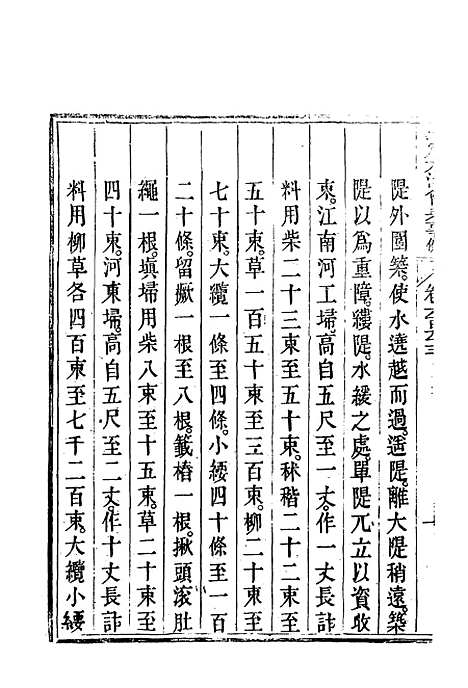 隄外圈築使水遶越而過遥隄離大隄稍遠築
隄以為重障縷隄水緩之處單隄兀立以資收
束江南河工埽高自五尺至一丈作一丈長計
料用柴二十三束至五十束秫稭二十二束至
五十束草一百五十束至三百束柳二十束至
七十束大纜一條至四條小䌁四十條至一百
二十條留橛一根至八根籤樁一根揪頭滚肚
繩一根填埽用柴八束至十五束草二十束至
四十束河東埽高自五尺至二丈作十丈長計
料用柳草各四百束至七千二百束大纜小䌁